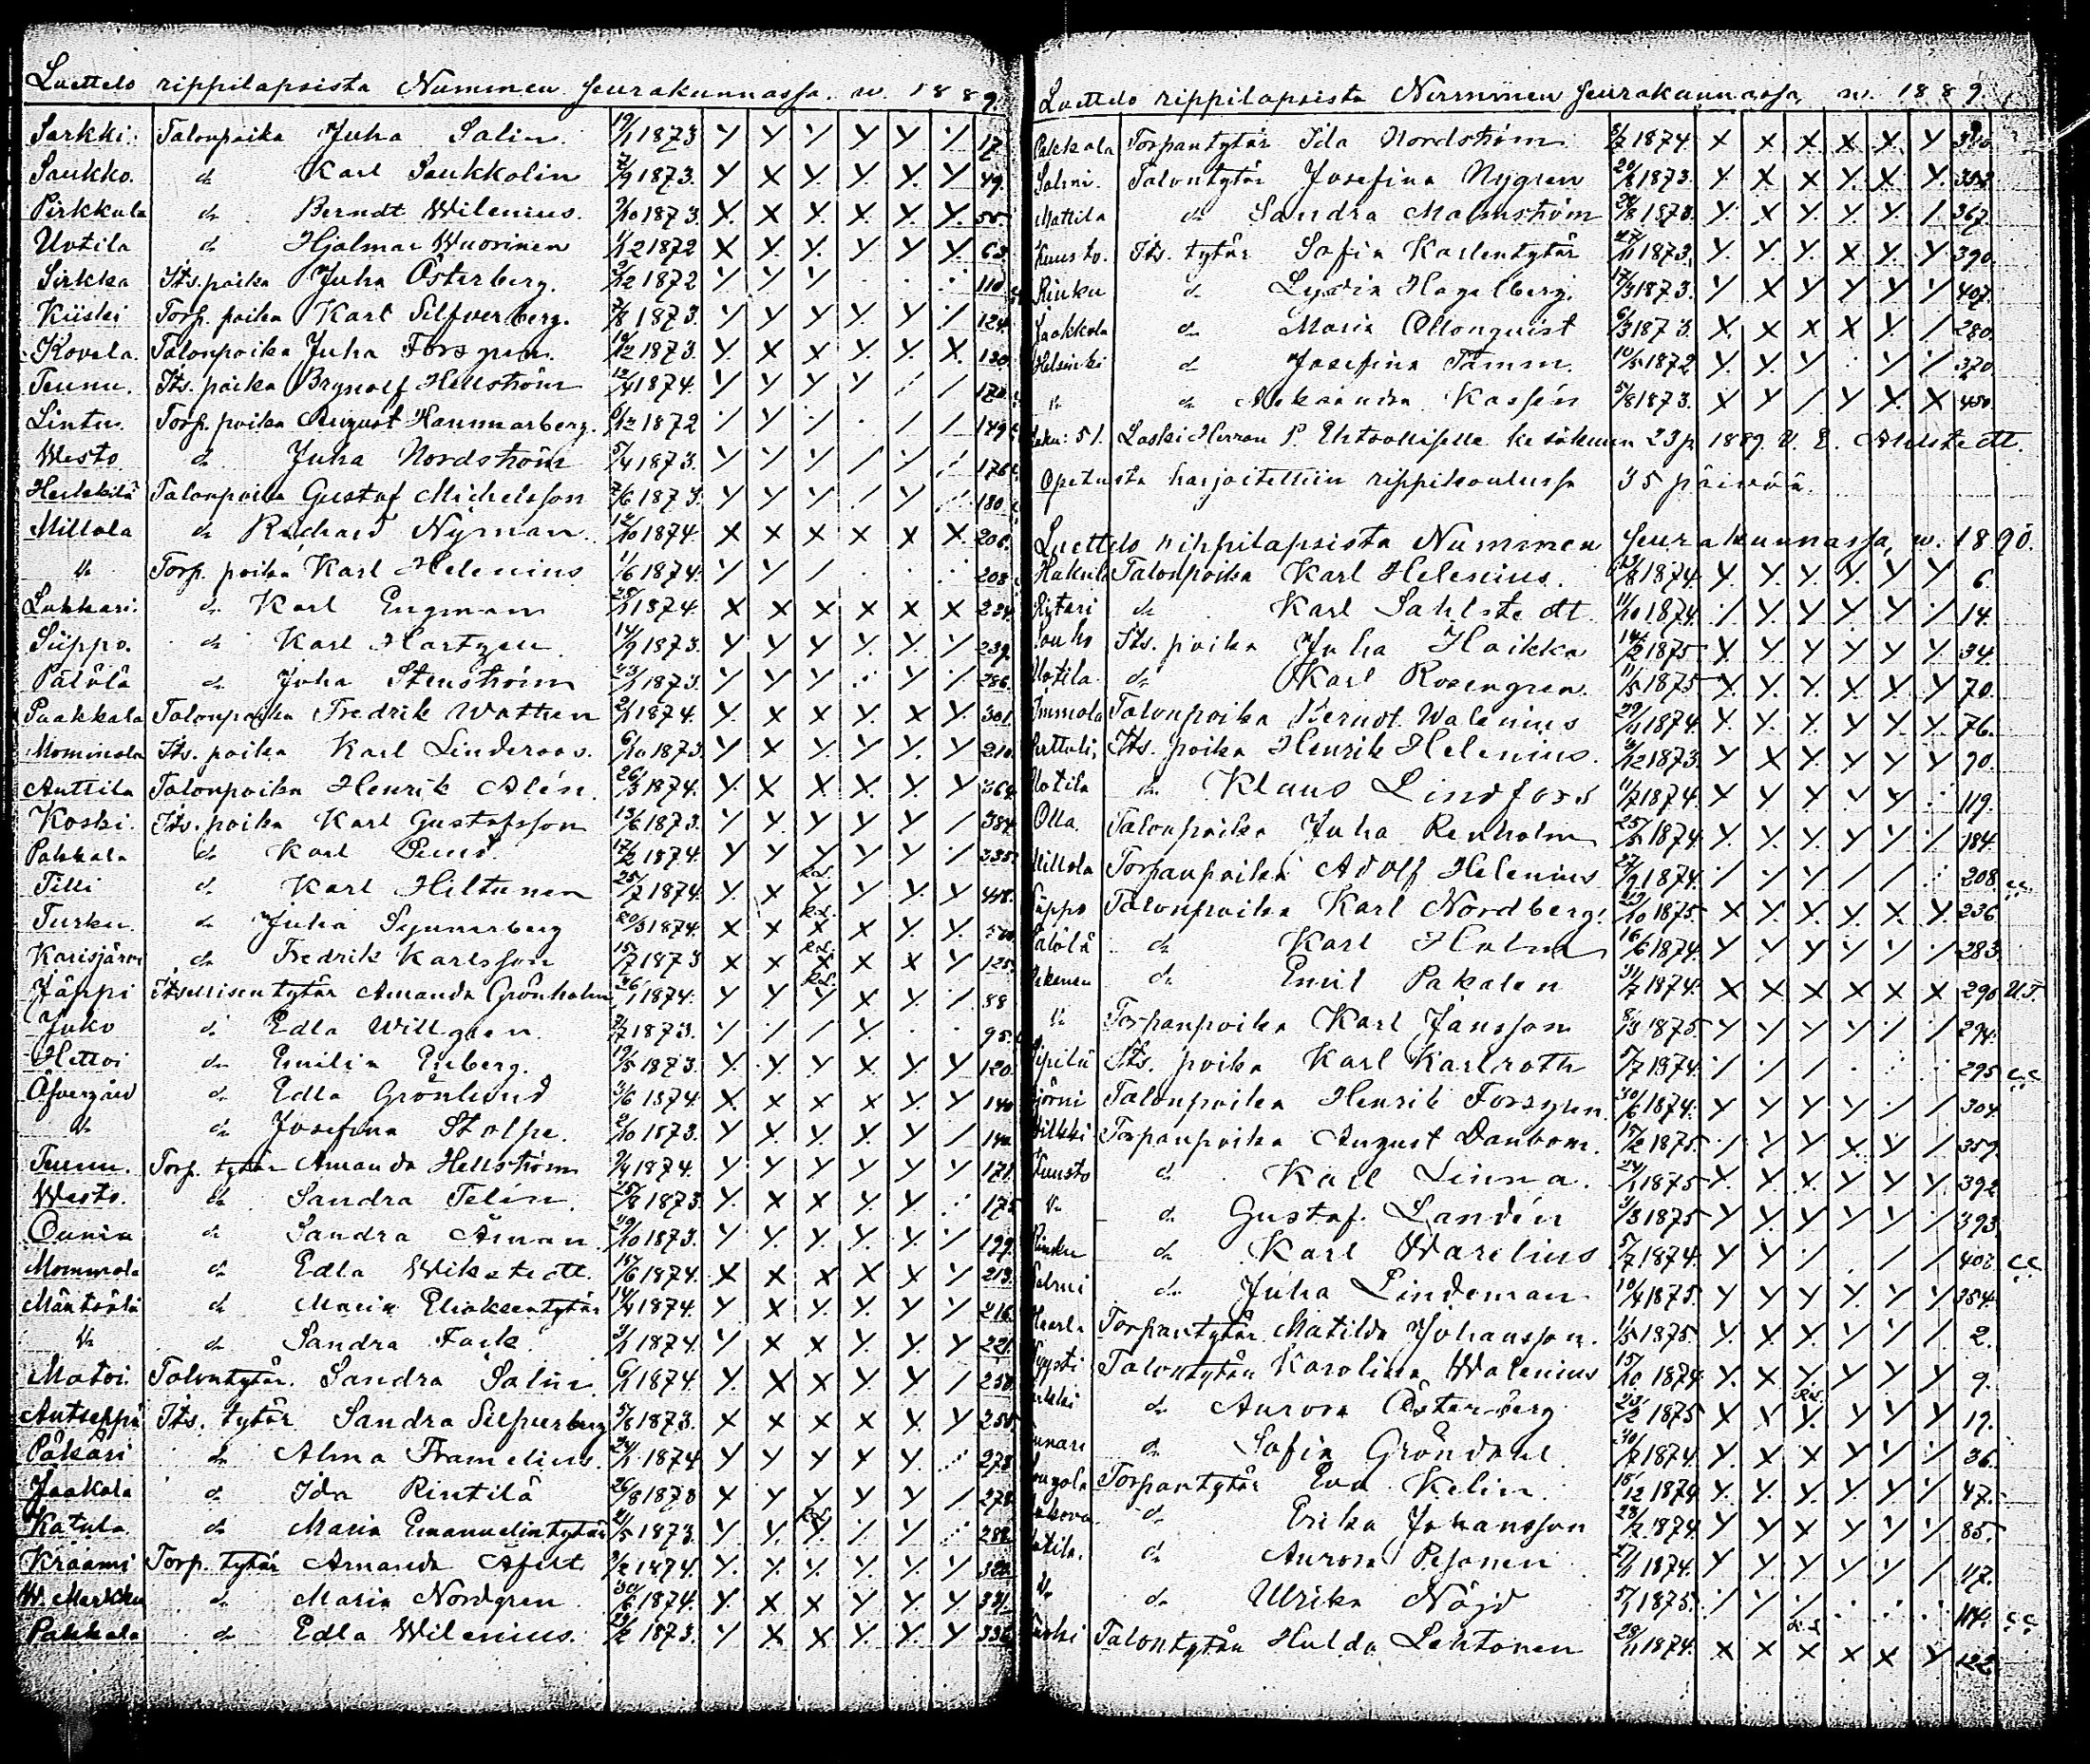 Luettelo rippilapsista Nummen seurakunnassa. w. 1889.
Sarkki. Talonpoika Juha Salin 19/11 1873 17
Saukko. do Karl Saukkolin 1873. 49.
Pirkkula do Berndt Wilenius. 1873. 55.
Uotila do Hjalmar Wuorinen 1872 63.
Sirkka Its. poika Juha Österberg. 1872 110
Kiiski Torp. poika Karl Silfverberg. 1873. 124.
Kovela. Talonpoika Juha Forsgren. 1873. 130.
Teunu. Its. poika Brynolf Hellström 1874. 170.
Lintu. Torp. poika August Hammarberg. 1872 149
Westo do Juha Nordström 5/4 1873. 176
Heikkilä Talonpoika Gustaf Michelsson 1873. 180
Millola do Richard Nyman 1874. 206.
" Torp. poika Karl Helenius 1/6 1874. 208
Lukkari. do Karl Engman 1874. 234.
Siippo. do Karl Hartzen 14/9 1873. 239.
Pälölä do Juha Stenström 23/11 1873. 286.
Paakkala Talonpoika Fredrik Wathen 1874. 301.
Mommola Its. poika Karl Linderoos. 6/10 1873. 210.
Anttila Talonpoika Henrik Alén. 26/3 1874. 364.
Koski. Its. poika Karl Gustafsson 13/6 1873. 384.
Pakkala do Karl 1874. 335.
Tilli do Karl Hiltunen 25/7 1874. 448.
Turku. do Juha 20/3 1874.
Karisjärvi do Fredrik Karlsson 15/7 1873 125.
Jäppi Itsellisen tytär Amanda Grönholm 26/1 1874. 88
Juko do Edla Willgren. 1873. 95.
Hettoi do Emilia Enberg. 19/5 1873. 120.
Öfvergård do Edla Grönlund 1874. 140
" do Josefina Stolpe. 2/10 1873. 140.
Teunu. Torp. tytär Amanda Hellström 1874. 171.
Westo. do Sandra Telin. 25/8 1873. 175
Ounia do Sandra Åman 1873. 199.
Mommola do Edla Wikstedt. 1874. 213.
Mäntsälä do Maria Eliaksentytär 14/4 1874. 216.
" do Sandra Fack. 1874. 221.
Matoi. Talontytär. Sandra Salin. 6/11 1874. 250.
Antseppä Its. tytär Sandra Silfverberg 5/8 1873. 255.
Päkäri do Alma Framelius. 24/1 1874 273
Jaakola do Ida Rintilä 26/8 1873 278.
Katula do Maria Emanuelintytär 1873. 288.
Kraami Torp. tytär Amanda 1874. 320.
W. Markku do Maria Nordgren 30/6 1874. 331.
Pakkala do Edla Wilenius. 1873. 336.
Luettelo rippilapsista Nummen seurakunnassa, w. 1889.
Pakkala Torpantytär Ida Nordström 1874. 340.
Salmi. Talontytär Josefina Nygren 20/8 1873. 353.
Mattila do Sandra Malmström 1873. 367.
Kuusto. Its. tytär Sofia Karlentytär 27/11 1873. 390.
Rinku do Lydia Hagelberg. 17/3 1873. 407.
Jaakkola do Maria Ollonquist 6/3 1873. 280.
Helsinki do Josefina Tamm. 10/5 1872 370.
" do Aleksandra Kassén 5/8 1873. 450.
Luku: 51. Laski Herran P. Ehtoolliselle kesäkuun 23 p. 1889. V. E. Ahlstedt.
Opetusta harjoitettiin rippikoulussa 35 päivää.
Luettelo rippilapsista Nummen seurakunnassa, w. 1890.
Hakula Talonpoika Karl Helenius. 1874. 6.
Rytari do Karl Sahlstedt. 11/10 1874. 14.
Louho Its. poika Juha Haikka 14/2 1875 34.
Uotila. do Karl Rosengren. 11/5 1875 70.
Immola Talonpoika Berndt Walenius 1874. 76.
Its. poika Henrik Helenius. 1873. 90.
Uotila do Klaus Lindfors 11/7 1874. 119.
Olla. Talonpoika Juha Renholm 25/5 1874. 184.
Millola Torpanpoika Adolf Helenius 27/9 1874. 208. c.c.
Siippo Talonpoika Karl Nordberg. 1875. 236
Pälölä do Karl Holm 16/6 1874. 283.
do Emil Pakalen 31/7 1874. 290 U.T.
" Torpanpoika Karl Jansson 8/3 1875 294.
Its. poika Karl Karlroth 5/7 1874. 295 c.c.
Talonpoika Henrik Forsgren. 30/6 1874. 304.
Hilkki Torpanpoika August Danbom. 15/2 1875. 359.
Kuusto do Karl Linna. 24/1 1875 392
" do Gustaf Landén 1875 393.
Rinku do Karl Warelius 5/7 1874. c.c.
Salmi do Juha Lindeman 10/4 1875. 354.
Torpantytär Matilda Johansson. 1875. 2.
Talontytär Karolina Walenius 15/10 1874. 9.
do Aurora Österberg 23/2 1875 19.
do Sofia Gröndahl 30/7 1874. 36.
Torpantytär Eva Kelin 1874 47.
do Erika Johansson 28/2 1874. 85.
Uotila. do Aurora Pesonen 1874. 117.
" do Ulrika Nöjd 5/1 1875. c.c.
Talontytär Hulda Lehtonen 28/11 1874. 122.